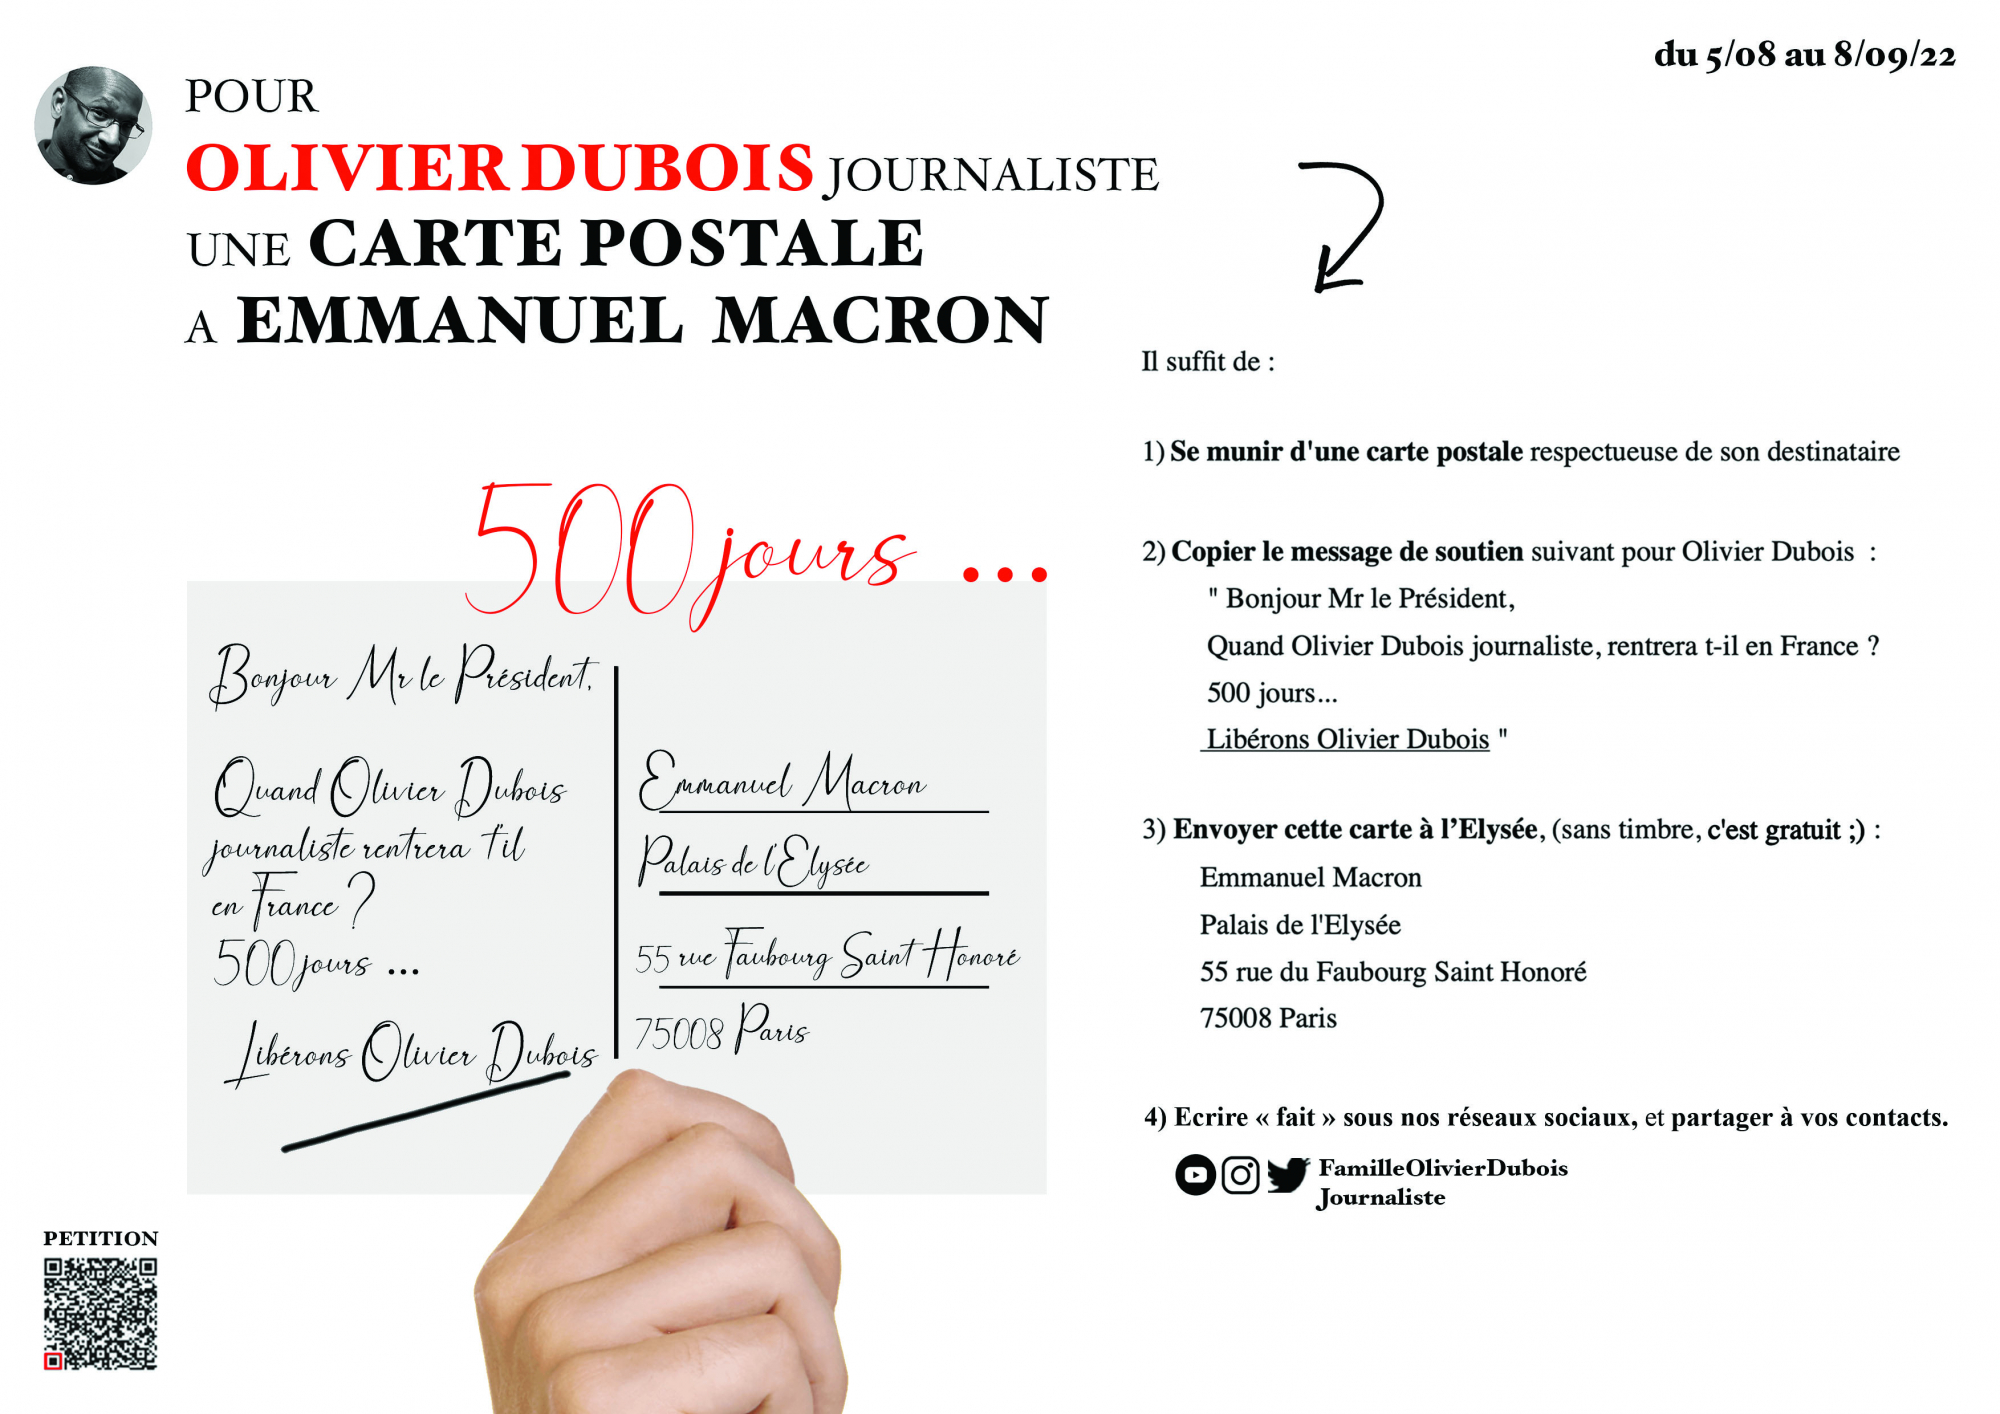 du 5/08 au 8/09/22
POUR
OLIVIER DUBOIS JOURNALISTE
UNE CARTE POSTALE
A EMMANUEL MACRON
500 jours ...
Bonjour Mr le Président,
Quand Olivier Dubois
journaliste rentrera t'il
en France ?
500 jours ...
Libérons Olivier Dubois
Emmanuel Macron
Palais de l'Elysée
55 rue Faubourg Saint Honoré
75008 Paris
PETITION
Il suffit de :
1) Se munir d'une carte postale respectueuse de son destinataire
2) Copier le message de soutien suivant pour Olivier Dubois :
" Bonjour Mr le Président,
Quand Olivier Dubois journaliste, rentrera t-il en France ?
500 jours...
Libérons Olivier Dubois "
3) Envoyer cette carte à l’Elysée, (sans timbre, c'est gratuit ;) :
Emmanuel Macron
Palais de l'Elysée
55 rue du Faubourg Saint Honoré
75008 Paris
4) Ecrire « fait » sous nos réseaux sociaux, et partager à vos contacts.
FamilleOlivierDubois
Journaliste